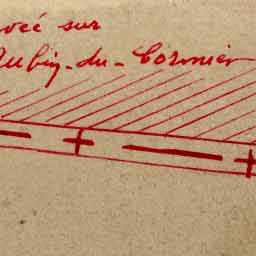 sur
Aubin-du-Cormier